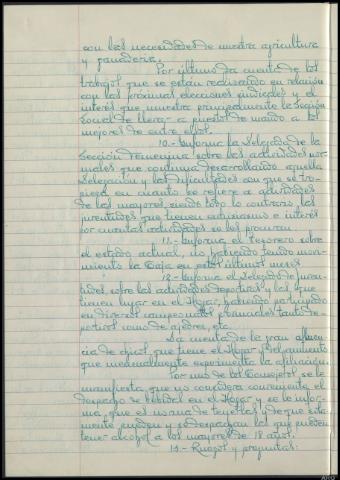 con las necesidades de nuestra agricultura
y ganadería.
Por último da cuenta de los
trabajos que se están realizando en relación
con las próximas elecciones sindicales y el
interés que muestra principalmente la Sección
Social de llevar a puestos de mando a los
mejores de entre ellos.
10.- Informa la Delegada de la
Sección Femenina sobre las actividades nor-
males que continua desarrollando aquella
Delegación y las dificultades con que se tro-
pieza en cuanto se refiere a actividades
de las mayores, siendo todo lo contrario las
juventudes que tienen entusiasmo e interés
por cuantas actividades se les procuran.
11.- Informa el Tesorero sobre
el estado actual, no habiendo tenido movi-
miento la Caja en estos últimos meses.
12.- Informa el Delegado de Juven-
tudes, sobre las actividades deportivas y las que
tienen lugar en el Hogar, habiendo participado
en diversos campeonatos provinciales tanto de-
portivos como de ajedrez, etc.
Da cuenta de la gran afluen-
cia de chicos que tiene el Hogar y del aumento
que mensualmente experimenta la afiliación.
Por uno de los Consejeros se le
manifiesta que no considera conveniente el
despacho de bebidas en el Hogar y se le infor-
ma, que es norma de
mente pueden y se despachan las que pueden
tener alcohol a los mayores de 18 años.
13.- Ruegos y preguntas: